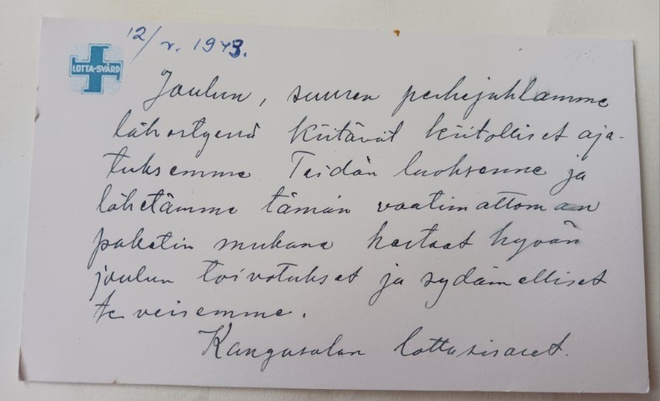 LOTTA-SVÄRD
12/x. 1943.
Joulun, suuren perhejuhlamme
lähestyessä kiitävät kiitolliset aja-
tuksemme Teidän luoksenne ja
lähetämme tämän vaatimattoman
paketin mukana hartaat hyvän
joulun toivotukset ja sydämelliset
terveisemme.
Kangasalan lottasisaret.